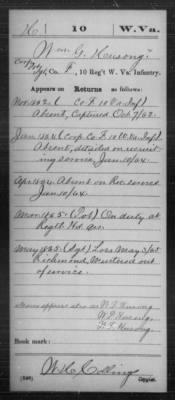 H 10 W.Va.
Wm. G. Housong
Corp Pvt
Sgt, Co. F, 10 Reg't W. Va. Infantry.
Appears on
Returns as
Nov 1862 Co F 10 Va Inft
Absent, Captured Oct 7/62.
Jan 1864 Corp Co F 10 W.Va. Inft.
Absent, detailed on recruit-
ing service, Jan 10/64.
Apl 1864 Absent on Rec. service
Jan 10/64
Mar 1865 (Pvt) On duty at
Regtl Hd. qrs.
May 1865 (Sgt) Loss May 3/65
Richmond, Mustered out
of service.
Name appears also as
Book mark:
(546)
Copyist.